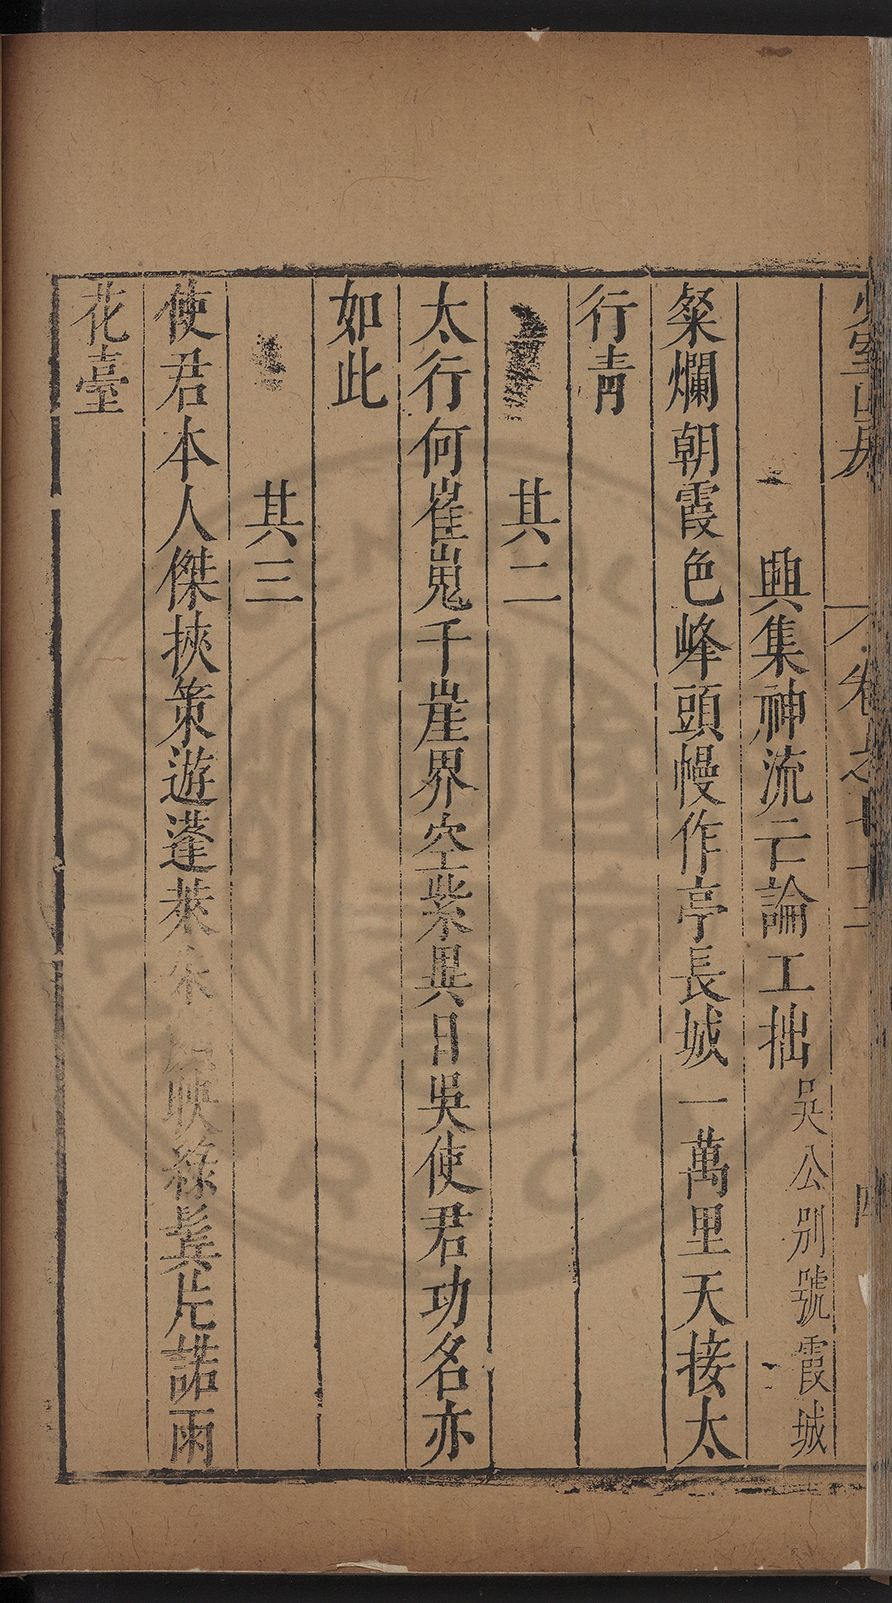 少室山房
卷之七十三
四
興集神流云論工拙吳公別號霞城
粲爛朝霞色峰頭幔作亭長城一萬里天接太
行青
其二
太行何崔嵬千崖界空紫異日吳使君功名亦
如此
其三
使君本人傑挾策遊蓬萊朱映綠鬓片諾雨
花臺